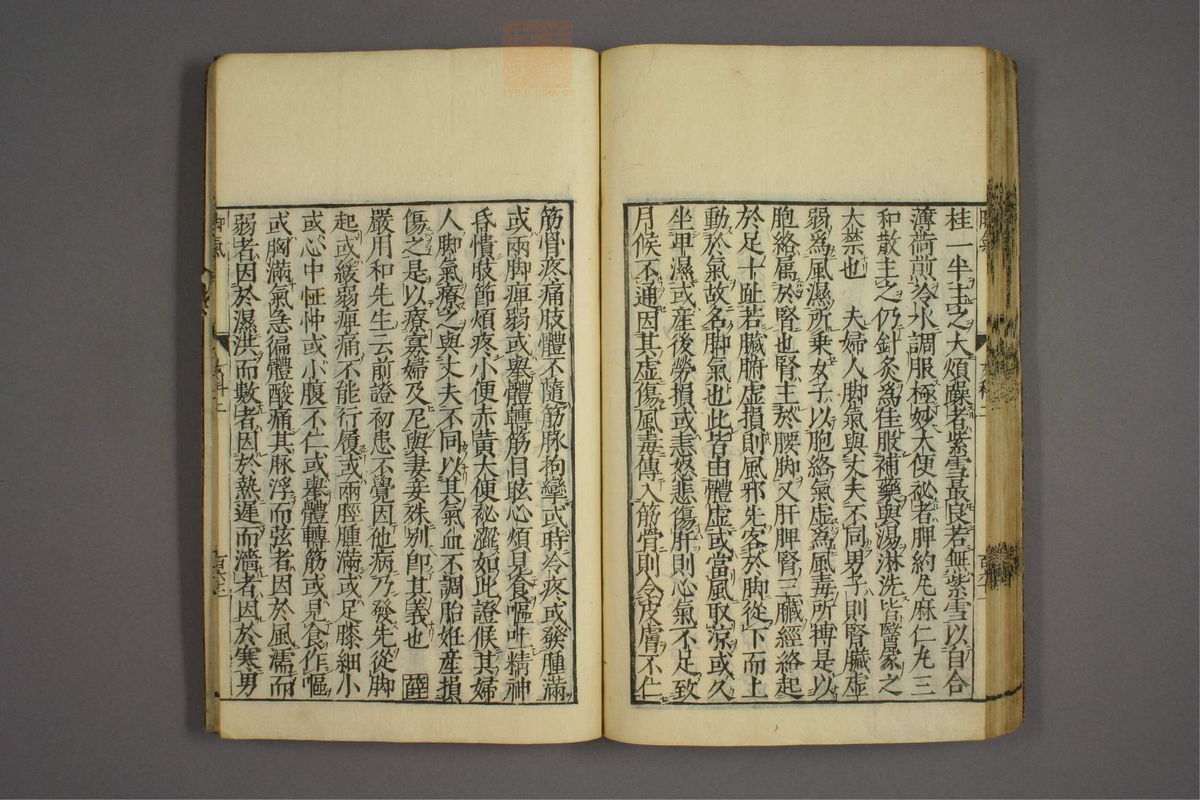 桂一半主之大煩躁者紫雪最良若無紫雪以自合
薄荷煎冷水調服極妙大便祕者脾約丸麻仁丸三
和散主之仍針灸爲佳服補藥與湯淋洗皆醫家之
大禁也　夫婦人脚氣與丈夫不同男子則腎臟虛
弱爲風濕所乗女子以胞絡氣虛爲風毒所搏是以
胞絡属於腎也腎主於腰脚又肝脾腎三臟經絡起
於足十趾若臟腑虛損則風邪先客於脚從下而上
動於氣故名脚氣也此皆由體虛或當風取涼或久
坐卑濕或産後勞損或恚怒悲傷肝則心氣不足致
月候不通因其虛傷風毒傳入筋骨則令皮膚不仁
筋骨疼痛肢體不隨筋脉拘攣或時冷疼或發腫滿
或兩脚痺弱或舉體轉筋目眩心煩見食嘔吐精神
昏憒肢節煩疼小便赤黃大便祕澀如此證候其婦
人脚氣療之與丈夫不同以其氣血不調胎妊産損
傷之是以療寡婦及尼與妻妾殊别卽其義也　薛
嚴用和先生云前證初患不覺因他病乃發先從脚
起或緩弱痺痛不能行履或兩脛腫滿或足膝細小
或心中怔忡或小腹不仁或舉體轉筋或見食作嘔
或胸滿氣急徧體酸痛其脉浮而弦者因於風濡而
弱者因於濕洪而數者因於熱遲而濇者因於寒男
脚氣
女科二